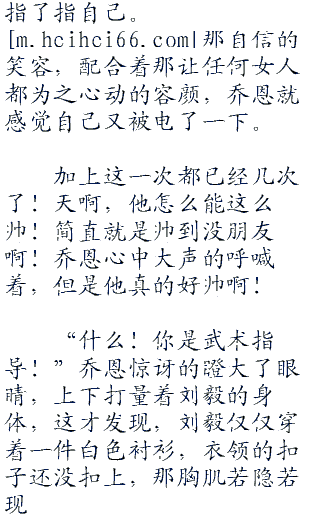 指了指自己。
[m.hcihci66.com|那自信的
笑容，配合着那让任何女人
都为之心动的容颜，乔恩就
感觉自己又被电了一下。
加上这一次都已经几次
了！天啊，他怎么能这么
帅！简直就是帅到没朋友
啊！乔恩心中大声的呼喊
着，但是他真的好帅啊！
“什么！你是武术指
导！”乔恩惊讶的瞪大了眼
睛，上下打量着刘毅的身
体，这才发现，刘毅仅仅穿
着一件白色衬衫，衣领的扣
子还没扣上，那胸肌若隐若
现